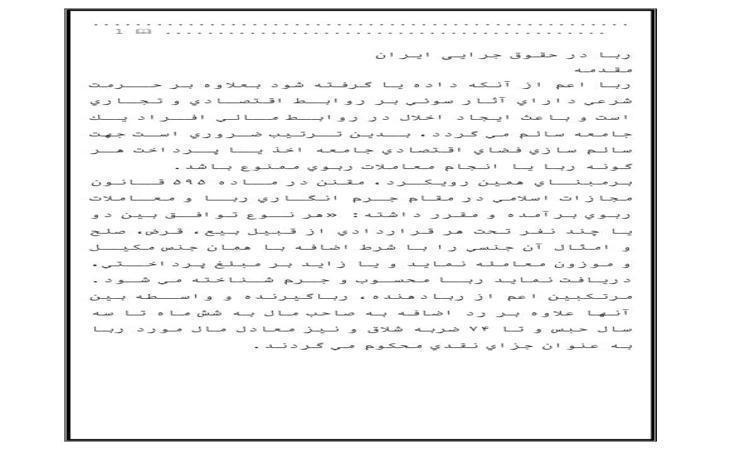 1
ربا در حقوق جزایی ایران
مقدمه
ربا اعم از آنکه داده یا گرفته شود بعلاوه بر حرمت
شرعی دارای آثار سوئی بر روابط اقتصادی و تجاری
است و باعث ایجاد اخلال در روابط مالی افراد یك
جامعه سالم می گردد. بدین ترتیب ضروری است جهت
سالم سازی فضای اقتصادی جامعه اخذ یا پرداخت هر
گونه ربا یا انجام معاملات ربوی ممنوع باشد.
برمبنای همین رویکرد، مقنن در ماده ۵۹۵ قانون
مجازات اسلامی در مقام جرم انگاری ربا و معاملات
ربوی برآمده و مقرر داشته: «هر نوع توافق بین دو
یا چند نفر تحت هر قراردادی از قبیل بیع، قرض، صلح
و امثال آن جنسی را با شرط اضافه با همان جنس مکیل
و موزون معامله نماید و یا زاید بر مبلغ پرداختی،
دریافت نماید ربا محسوب و جرم شناخته می شود.
مرتکبین اعم از ربادهنده، رباگیرنده و واسطه بین
آنها علاوه بر رد اضافه به صاحب مال به شش ماه تا سه
سال حبس و تا ۷۴ ضربه شلاق و نیز معادل مال مورد ربا
به عنوان جزای نقدی محکوم می گردند.